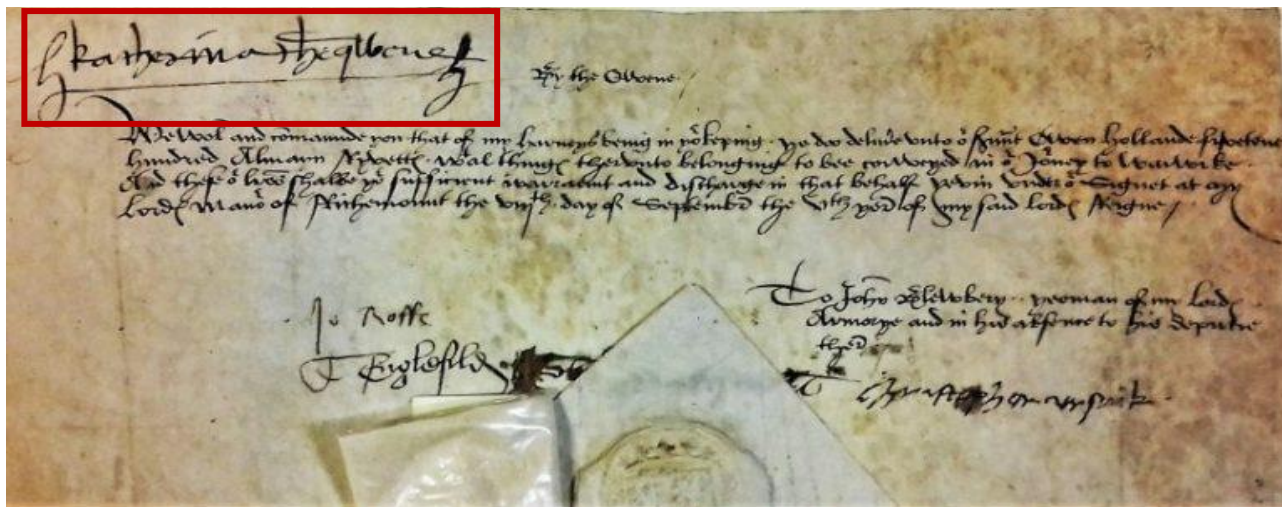 katherina the qwene
By the Qwene
We wol and comaunde you that of my harneys being in yor keping ye do deliver unto or servnt Owen Hollande fivetene
hundred Almann Ryvettes wt al things therunto belonging to bee conveyed in or Joney to Warwike
And these or lres shalbe yor sufficient warraunt and discharge in that behalf yevin undre or Signet at my
Lordes Manor of Richemount the viijth day of Septembre the vth yere of my said lordes Reigne
Jo Roffe
T Englefild
To John Blewbery yeoman of my Lordes
Armorye and in his absence to his deputie
there
Christopher urswik